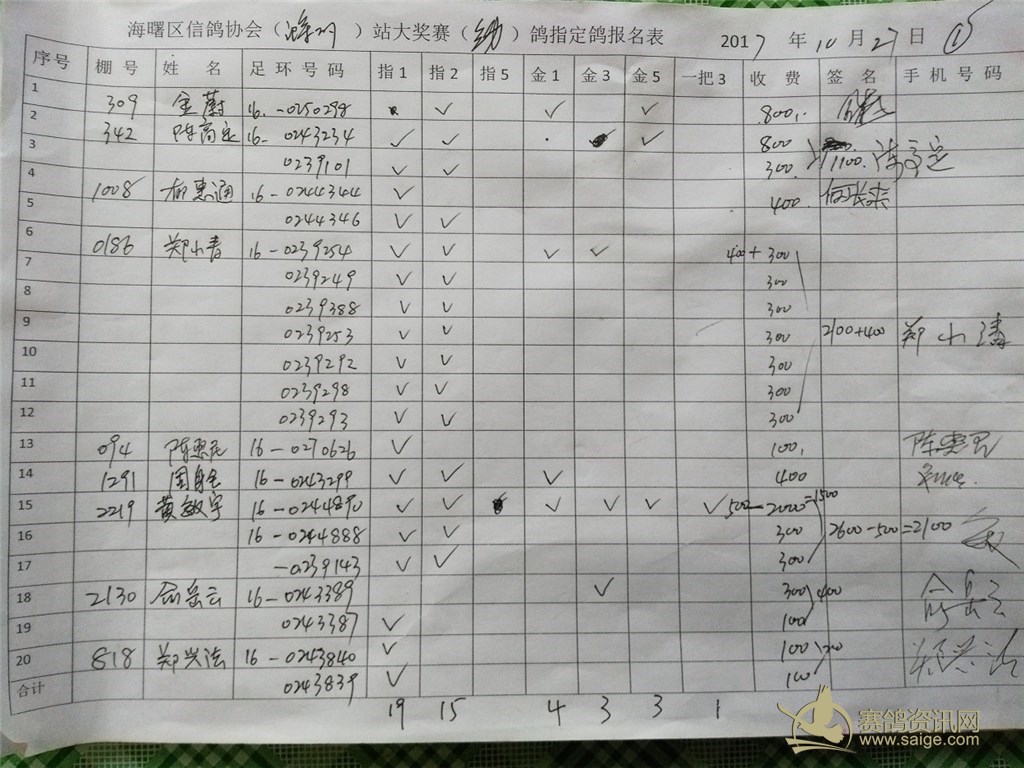 海曙区信鸽协会（ ）站大奖赛（幼）鸽指定鸽报名表 2017 年 10 月 27 日 ①
序号 棚号 姓名 足环号码 指1 指2 指5 金1 金3 金5 一把3 收费 签名 手机号码
1
2 309 金蔚 16.-0250298 ✓ ✓ ✓ 800
3 342 陈高定 16-0243234 ✓ ✓ ✓ 800
0239101 ✓ ✓ 300 1100.
4
1008 惠通 16-0244344 ✓ 400
5
0244346 ✓ ✓
6
0186 郑小青 16-0239254 ✓ ✓ ✓ ✓ 400+300
7 0239249 ✓ ✓ 300
8 0239388 ✓ ✓ 300
9 0239253 ✓ ✓ 300 2100+400 郑小清
10 0239292 ✓ ✓ 300
11 0239298 ✓ ✓ 300
12 0239293 ✓ ✓ 300
13 094 陈惠民 16-0270626 ✓ 100, 陈惠民
14 1291 16-0243299 ✓ ✓ ✓ 400
15 2219 黄敏宇 16-0244890 ✓ ✓ ✓ ✓ ✓ ✓ 500-2000=1500
16 16-0244888 ✓ ✓ 300 2600-500=2100
17 -0239143 ✓ ✓ 300
18 2130 俞岳云 16-0243389 ✓ 300 400
19 0243387 ✓ 100
20 818 郑兴法 16-0243840 ✓ 100 200
合计 0243839 ✓ 100
19 15 4 3 3 1
赛鸽资讯网
www.saige.com